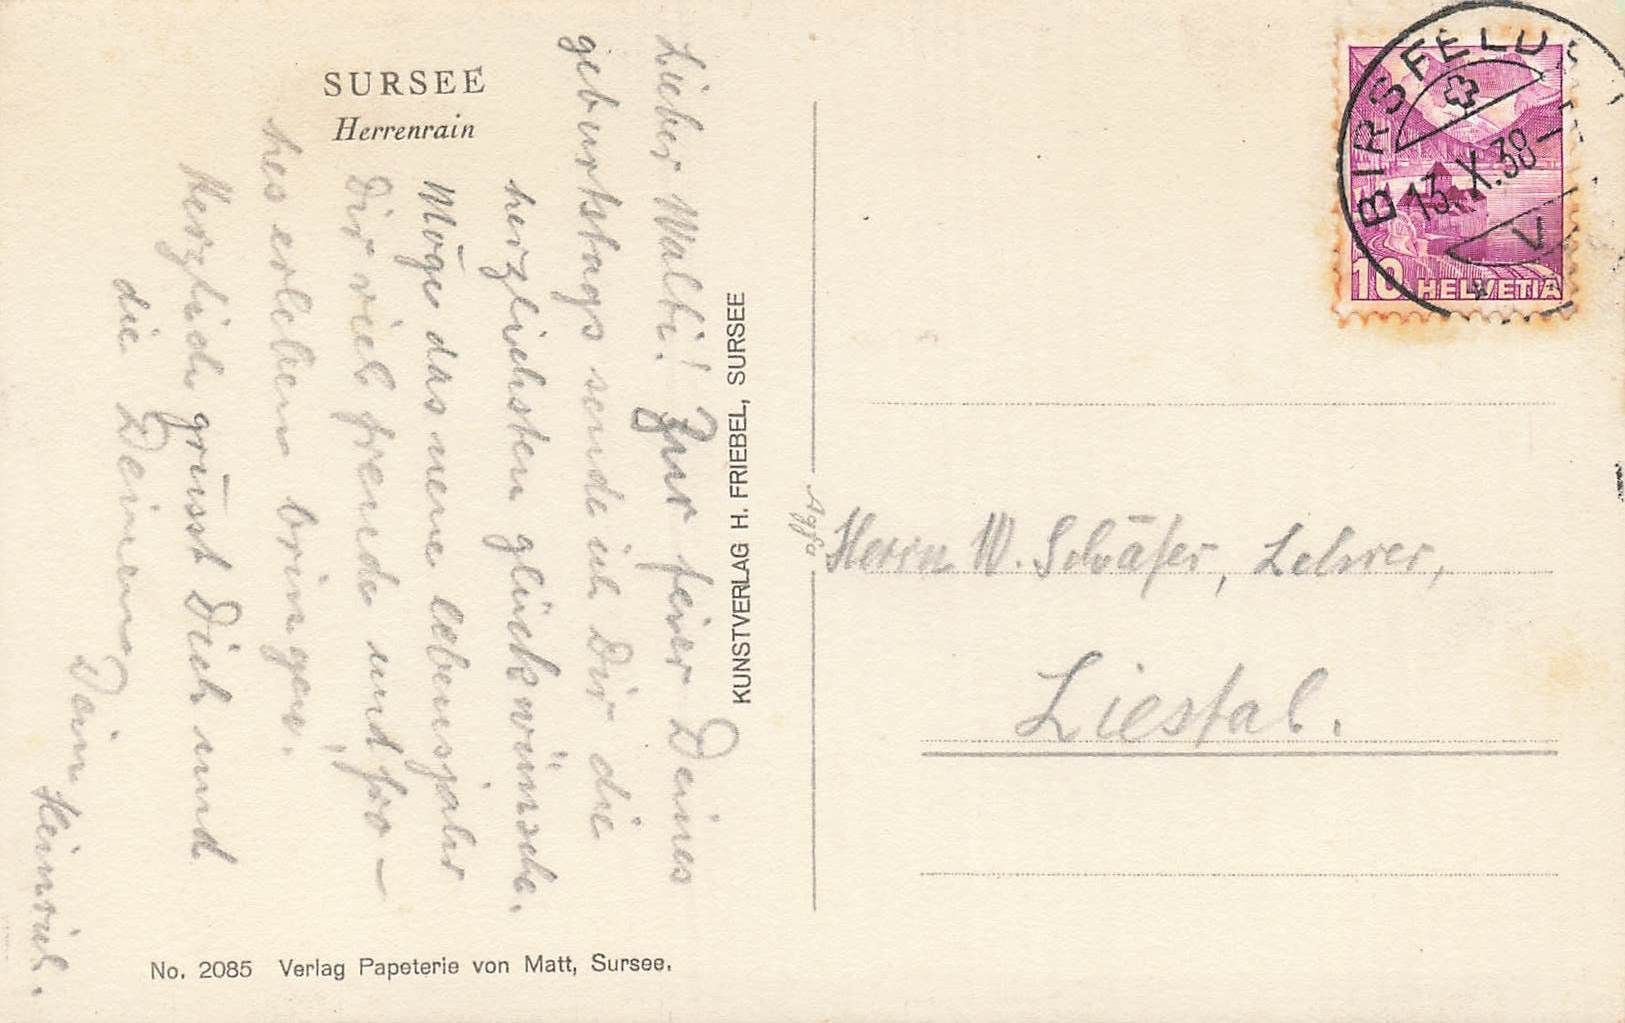 SURSEE
Herrenrain
Lieber Walti! Zur feier Deines
geburtstags sende ich Dir die
herzlichsten glückwünsche.
Möge das neue lebensjahr
Dir viel freude und fro-
hes erleben bringen.
Herzlich grüsst Dich und
die Deinen,
Dein Heinrich.
KUNSTVERLAG H. FRIEBEL, SURSEE
No. 2085 Verlag Papeterie von Matt, Sursee.
Agfa
BIRSFELD
13.X.38
10 HELVETIA
Herrn W. Schäfer, Lehrer,
Liestal.